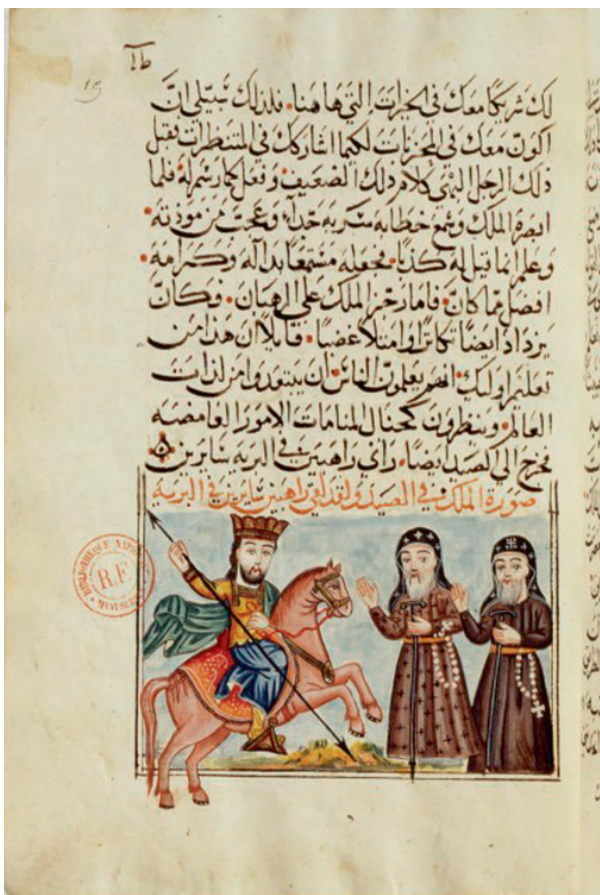 ١٥
15
لك شريكًا معك في الخيرات التي هاهنا. فلذلك سبيلي ان
اكون معك في المحزنات لكيما اشاركك في المنتظرات فقبل
ذلك الرجل البهي كلام ذلك الضعيف وفعل كما رسم له فلما
ابصره الملك وسمع خطابه سر به جدًا. وعجب من مودته
وعلم انما قيل له كذبًا. فجعله مستمتعًا بدالة وكرامه.
افضل مما كان. فاما رجز الملك على الرهبان. فكان
يزداد ايضًا تكاثرًا وامتلا غضبًا. قايلاً ان هذا من
تعليم اوليك. انهم يعلمون الناس ان يبتعدوا من لذات
العالم. وينظرون كخيال المنامات الامور الغامضه
فخرج الى الصيد ايضًا. راي راهبين في البريه سايرين
صورة الملك في الصيد ولقد لقي راهبين سايرين في البريه
BIBLIOTHÈQUE NATIONALE
R.F.